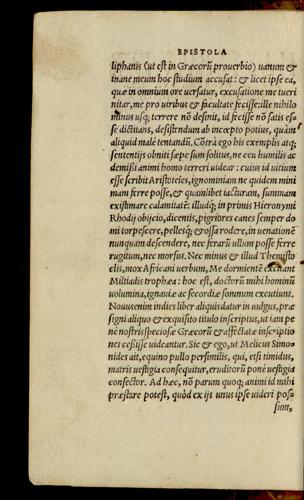 EPISTOLA
liphanis (ut est in Græcorũ prouerbio) uanum &
inane meum hoc studium accusat: & licet ipse ea,
quæ in omnium ore uersatur, excusatione me tueri
nitar, me pro uiribus & facultate fecisse: ille nihilo
minus usq; terrere nõ desinit, id fecisse nõ satis es-
se dictitans, desistendum ab incœpto potius, quàm
aliquid malè tentandũ. Cõtrà ego his exemplis atq;
sententijs obniti sæpe sum solitus, ne ceu humilis ac
demissi animi homo terreri uidear: cuius id uitium
esse scribit Aristoteles, ignominiam ne quidem mini
mam ferre posse, & quamlibet iacturam, summam
existimare calamitatẽ: illudq; in primis Hieronymi
Rhodij obijcio, dicentis, pigriores canes semper do
mi torpescere, pellesq; & ossa rodere, in uenationẽ
nunquam descendere, nec ferarũ ullum posse ferre
rugitum, nec morsus. Nec minus & illud Themisto
clis, mox Africani uerbum, Me dormientẽ excitant
Miltiadis trophæa: hoc est, doctorũ mihi hominũ
uolumina, ignauiæ ac secordiæ somnum excutiunt.
Nouus enim in dies liber aliquis datur in uulgus, præ
signi aliquo & exquisito titulo inscriptus, ut iam pe
nè nostris speciosæ Græcorũ & affectatæ inscriptio
nes cessisse uideantur. Sic & ego, ut Melicus Simo-
nides ait, equino pullo persimilis, qui, etsi timidus,
matris uestigia consequitur, eruditorũ ponè uestigia
consector. Ad hæc, nõ parum quoq; animi id mihi
præstare potest, quòd ex ijs unus ipse uideri pos-
sum,